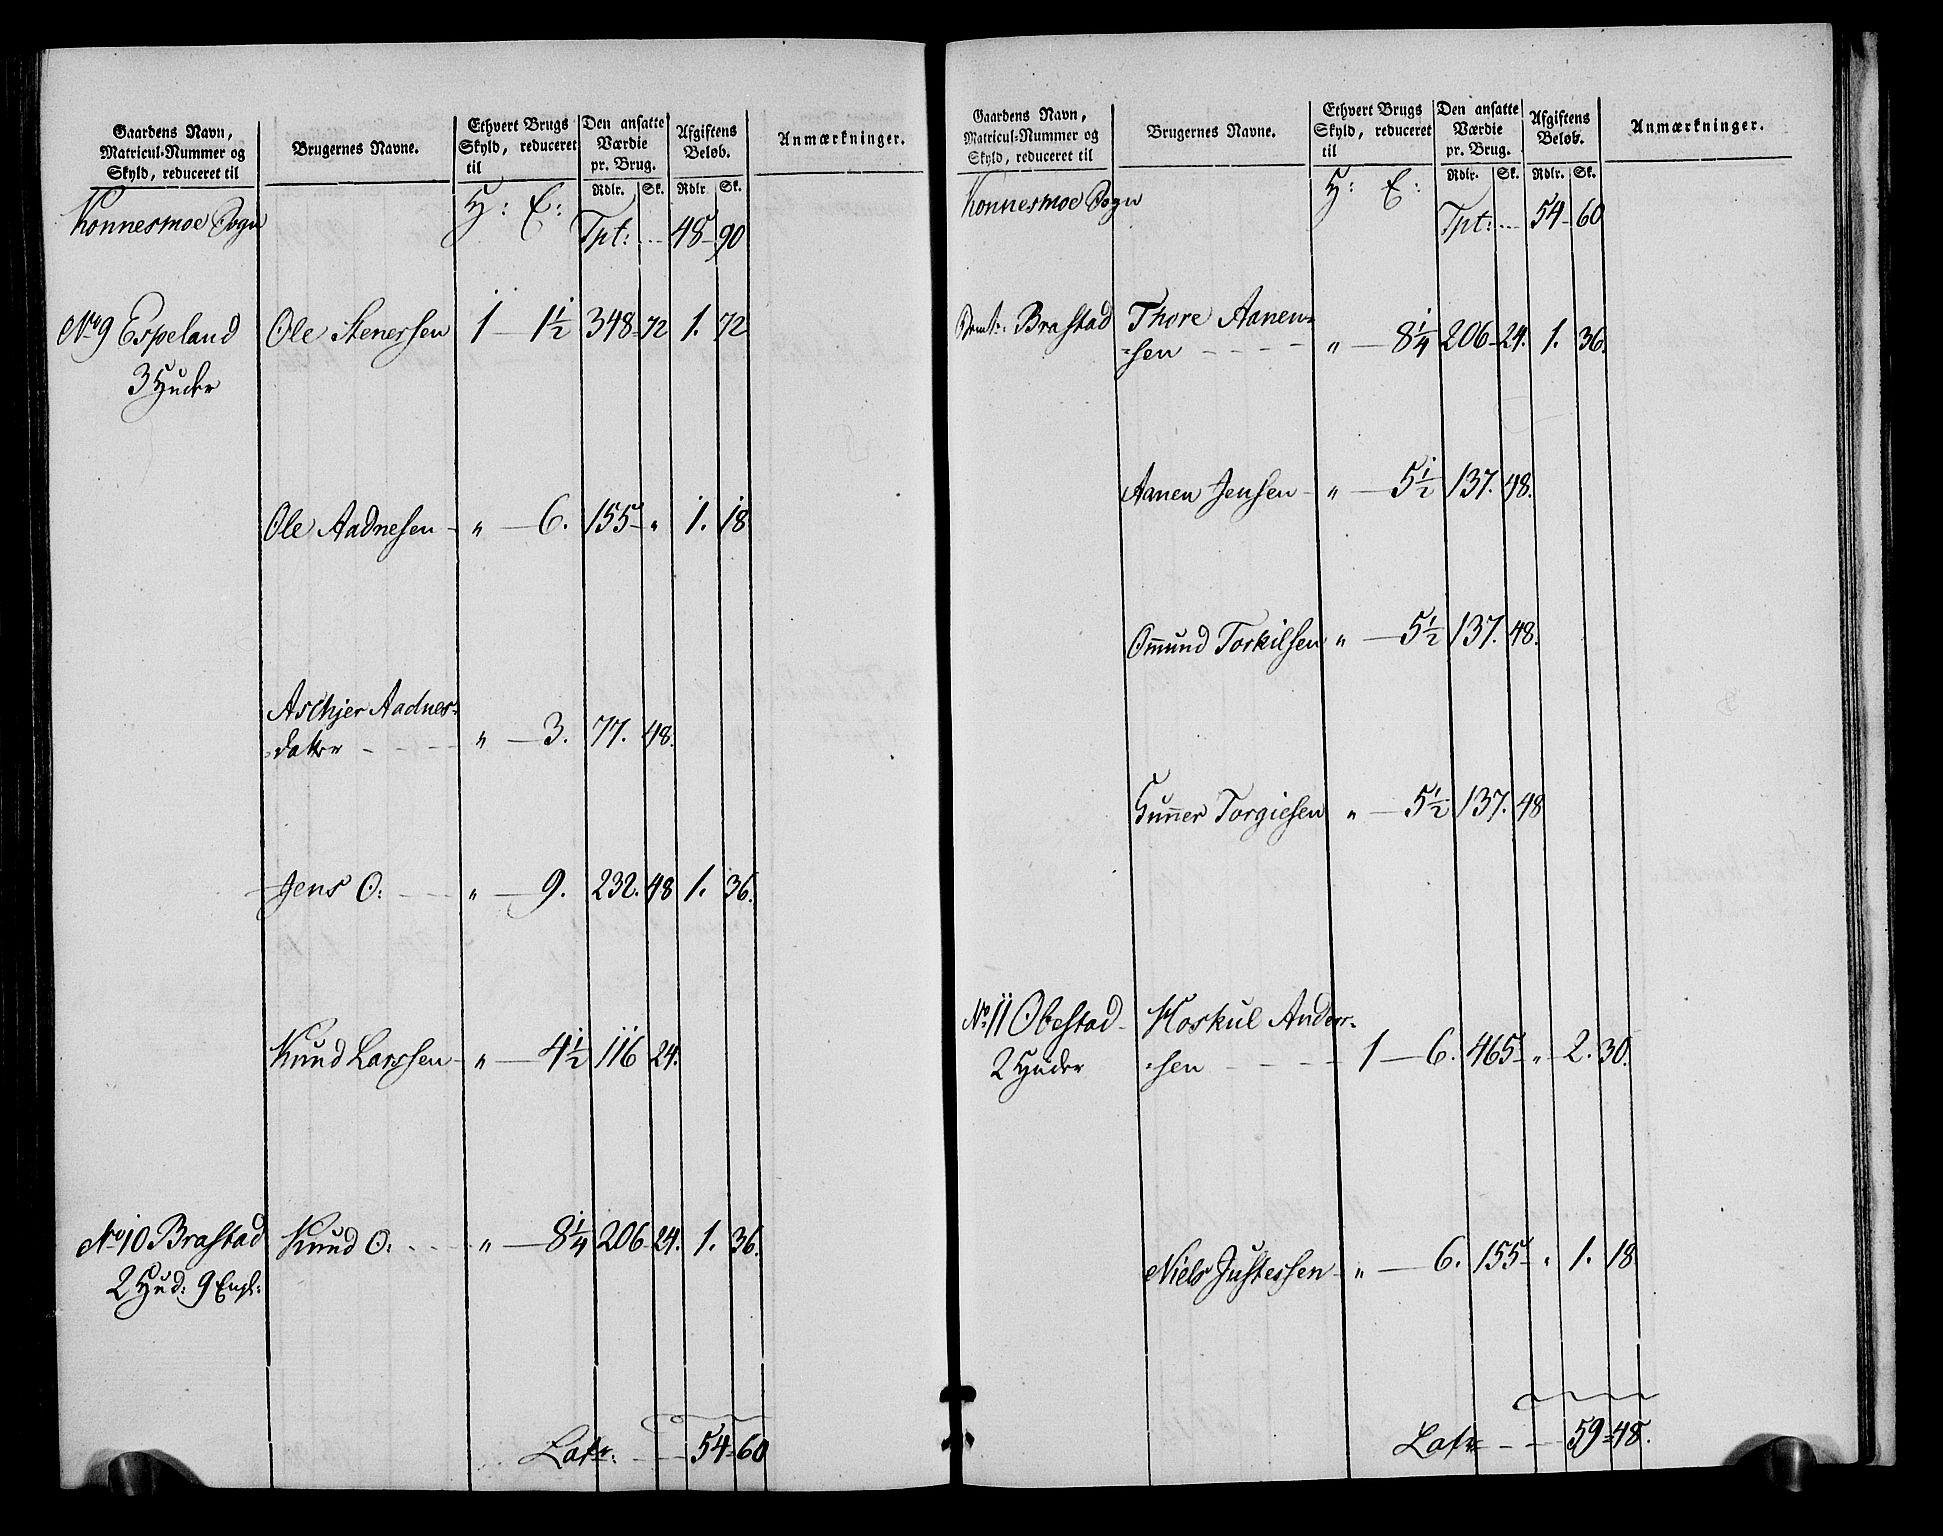 Gaardens Navn, Matricul-Nummer og Skyld, reduceret til | Brugernes Navne. | Ethvert Brugs Skyld, reduceret til | Den ansatte Værdie pr. Brug. | Afgiftens Beløb. | Anmærkninger.
Rdlr. Sk. Rdlr. Sk.
Konnesmoe Sogn H: E: Tpt: 48 - 90
No 9 Espeland Ole Stenersen 1 - 1 1/2 348 - 72 1. 72
3 Huder
Ole Aadnesen - " - 6. 155 - " 1. 18
Aschjer Aadnes-
datter " - 3. 77. 48.
Jens O: " - 9. 232. 48 1. 36.
Knud Larssen - " - 4 1/2 116 24.
No 10 Brastad Knud O: " - 8 1/4 206 - 24. 1. 36.
2 Hud: 9 Engl:
Latr: 54 - 60
Gaardens Navn, Matricul-Nummer og Skyld, reduceret til | Brugernes Navne. | Ethvert Brugs Skyld, reduceret til | Den ansatte Værdie pr. Brug. | Afgiftens Beløb. | Anmærkninger.
Rdlr. Sk. Rdlr. Sk.
Konnesmoe Sogn H: E: Tpt: 54 - 60
Brastad Thore Aanen=
=sen " - 8 1/4 206 - 24. 1. 36.
Aanen Jensen - " - 5 1/2 137. 48.
Omund Torkilsen " - 5 1/2 137. 48.
Gunner Torgiesen " - 5 1/2 137. 48
No 11 Obestad Hoskul Anders=
2 Huder =sen 1 - 6. 465 - " 2. 30.
Niels Justessen - " - 6. 155 - " 1. 18
Latr 59 = 48.